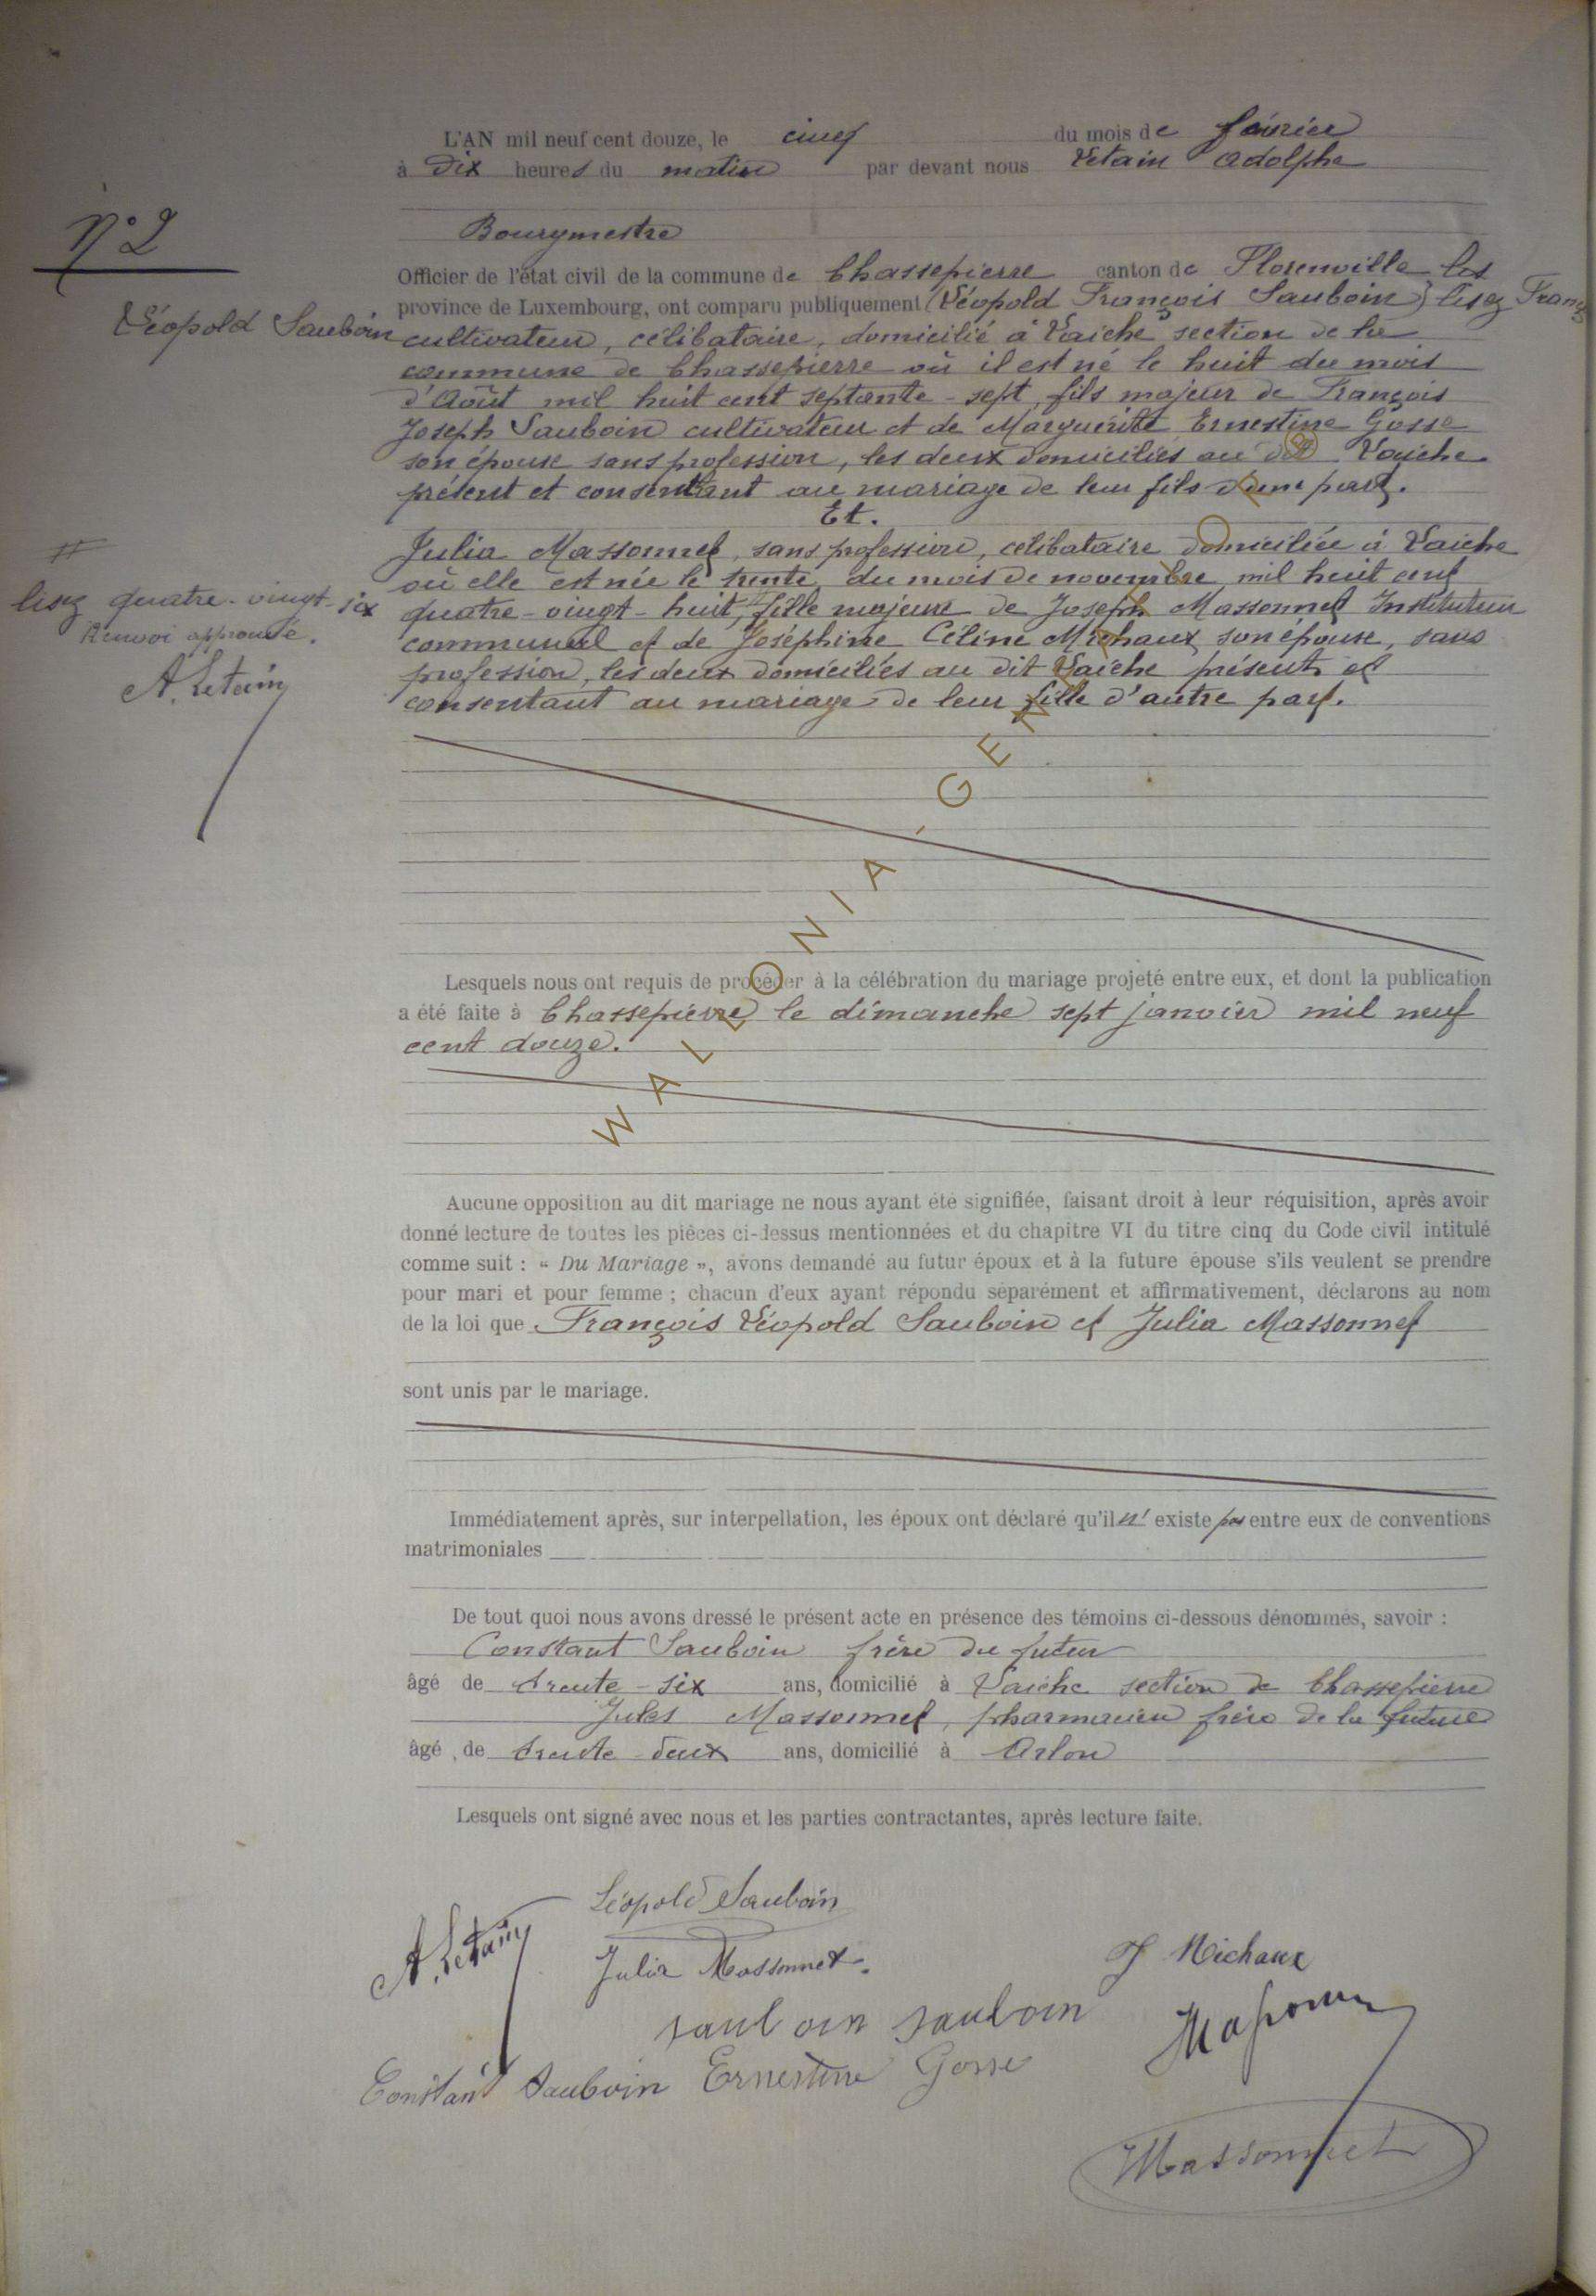 L'AN mil neuf cent douze, le cinq du mois de février
à Dix heures du matin par devant nous Létain Adolphe
N° 2
Bourgmestre
Officier de l'état civil de la commune de Chassepierre canton de Florenville
province de Luxembourg, ont comparu publiquement (Léopold François Sauboin) lisez François
Léopold Sauboin cultivateur, célibataire, domicilié à Laiche section de la
commune de Chassepierre où il est né le huit du mois
d'Août mil huit cent septante-sept, fils majeur de François
Joseph Sauboin cultivateur et de Marguérite Ernestine Gosse
son épouse sans profession, les deux domiciliés au dit Laiche
présent et consentant au mariage de leur fils d'une part.
Et.
Julia Massonnet, sans profession, célibataire domiciliée à Laiche
où elle est née le trente du mois de novembre mil huit cent
#
lisez quatre-vingt-six
Renvoi approuvé.
A. Letain
quatre-vingt-huit, # fille majeure de Joseph Massonnet Instituteur
communal et de Joséphine Céline Michaux son épouse, sans
profession, les deux domiciliés au dit Laiche présent et
consentant au mariage de leur fille d'autre part.
WALLONIA-GEN
Lesquels nous ont requis de procéder à la célébration du mariage projeté entre eux, et dont la publication
a été faite à Chassepierre le dimanche sept janvier mil neuf
cent douze.
Aucune opposition au dit mariage ne nous ayant été signifiée, faisant droit à leur réquisition, après avoir
donné lecture de toutes les pièces ci-dessus mentionnées et du chapitre VI du titre cinq du Code civil intitulé
comme suit : « Du Mariage », avons demandé au futur époux et à la future épouse s'ils veulent se prendre
pour mari et pour femme ; chacun d'eux ayant répondu séparément et affirmativement, déclarons au nom
de la loi que François Léopold Sauboin et Julia Massonnet
sont unis par le mariage.
Immédiatement après, sur interpellation, les époux ont déclaré qu'il n'existe pas entre eux de conventions
matrimoniales
De tout quoi nous avons dressé le présent acte en présence des témoins ci-dessous dénommés, savoir :
Constant Sauboin frère du futur
âgé de trente-six ans, domicilié à Laiche section de Chassepierre
Jules Massonnet, pharmacien frère de la future
âgé de trente-deux ans, domicilié à Arlon
Lesquels ont signé avec nous et les parties contractantes, après lecture faite.
Léopold Sauboin
A. Letain
Julia Massonnet.
J Michaux
sauboin sauboin
Constant Sauboin Ernestine Gosse
Massonnet